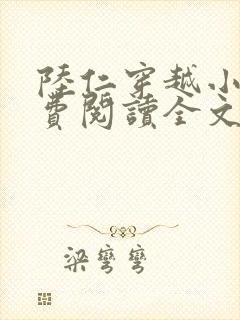 陸仁穿越小
費閱讀全文
梁彎彎